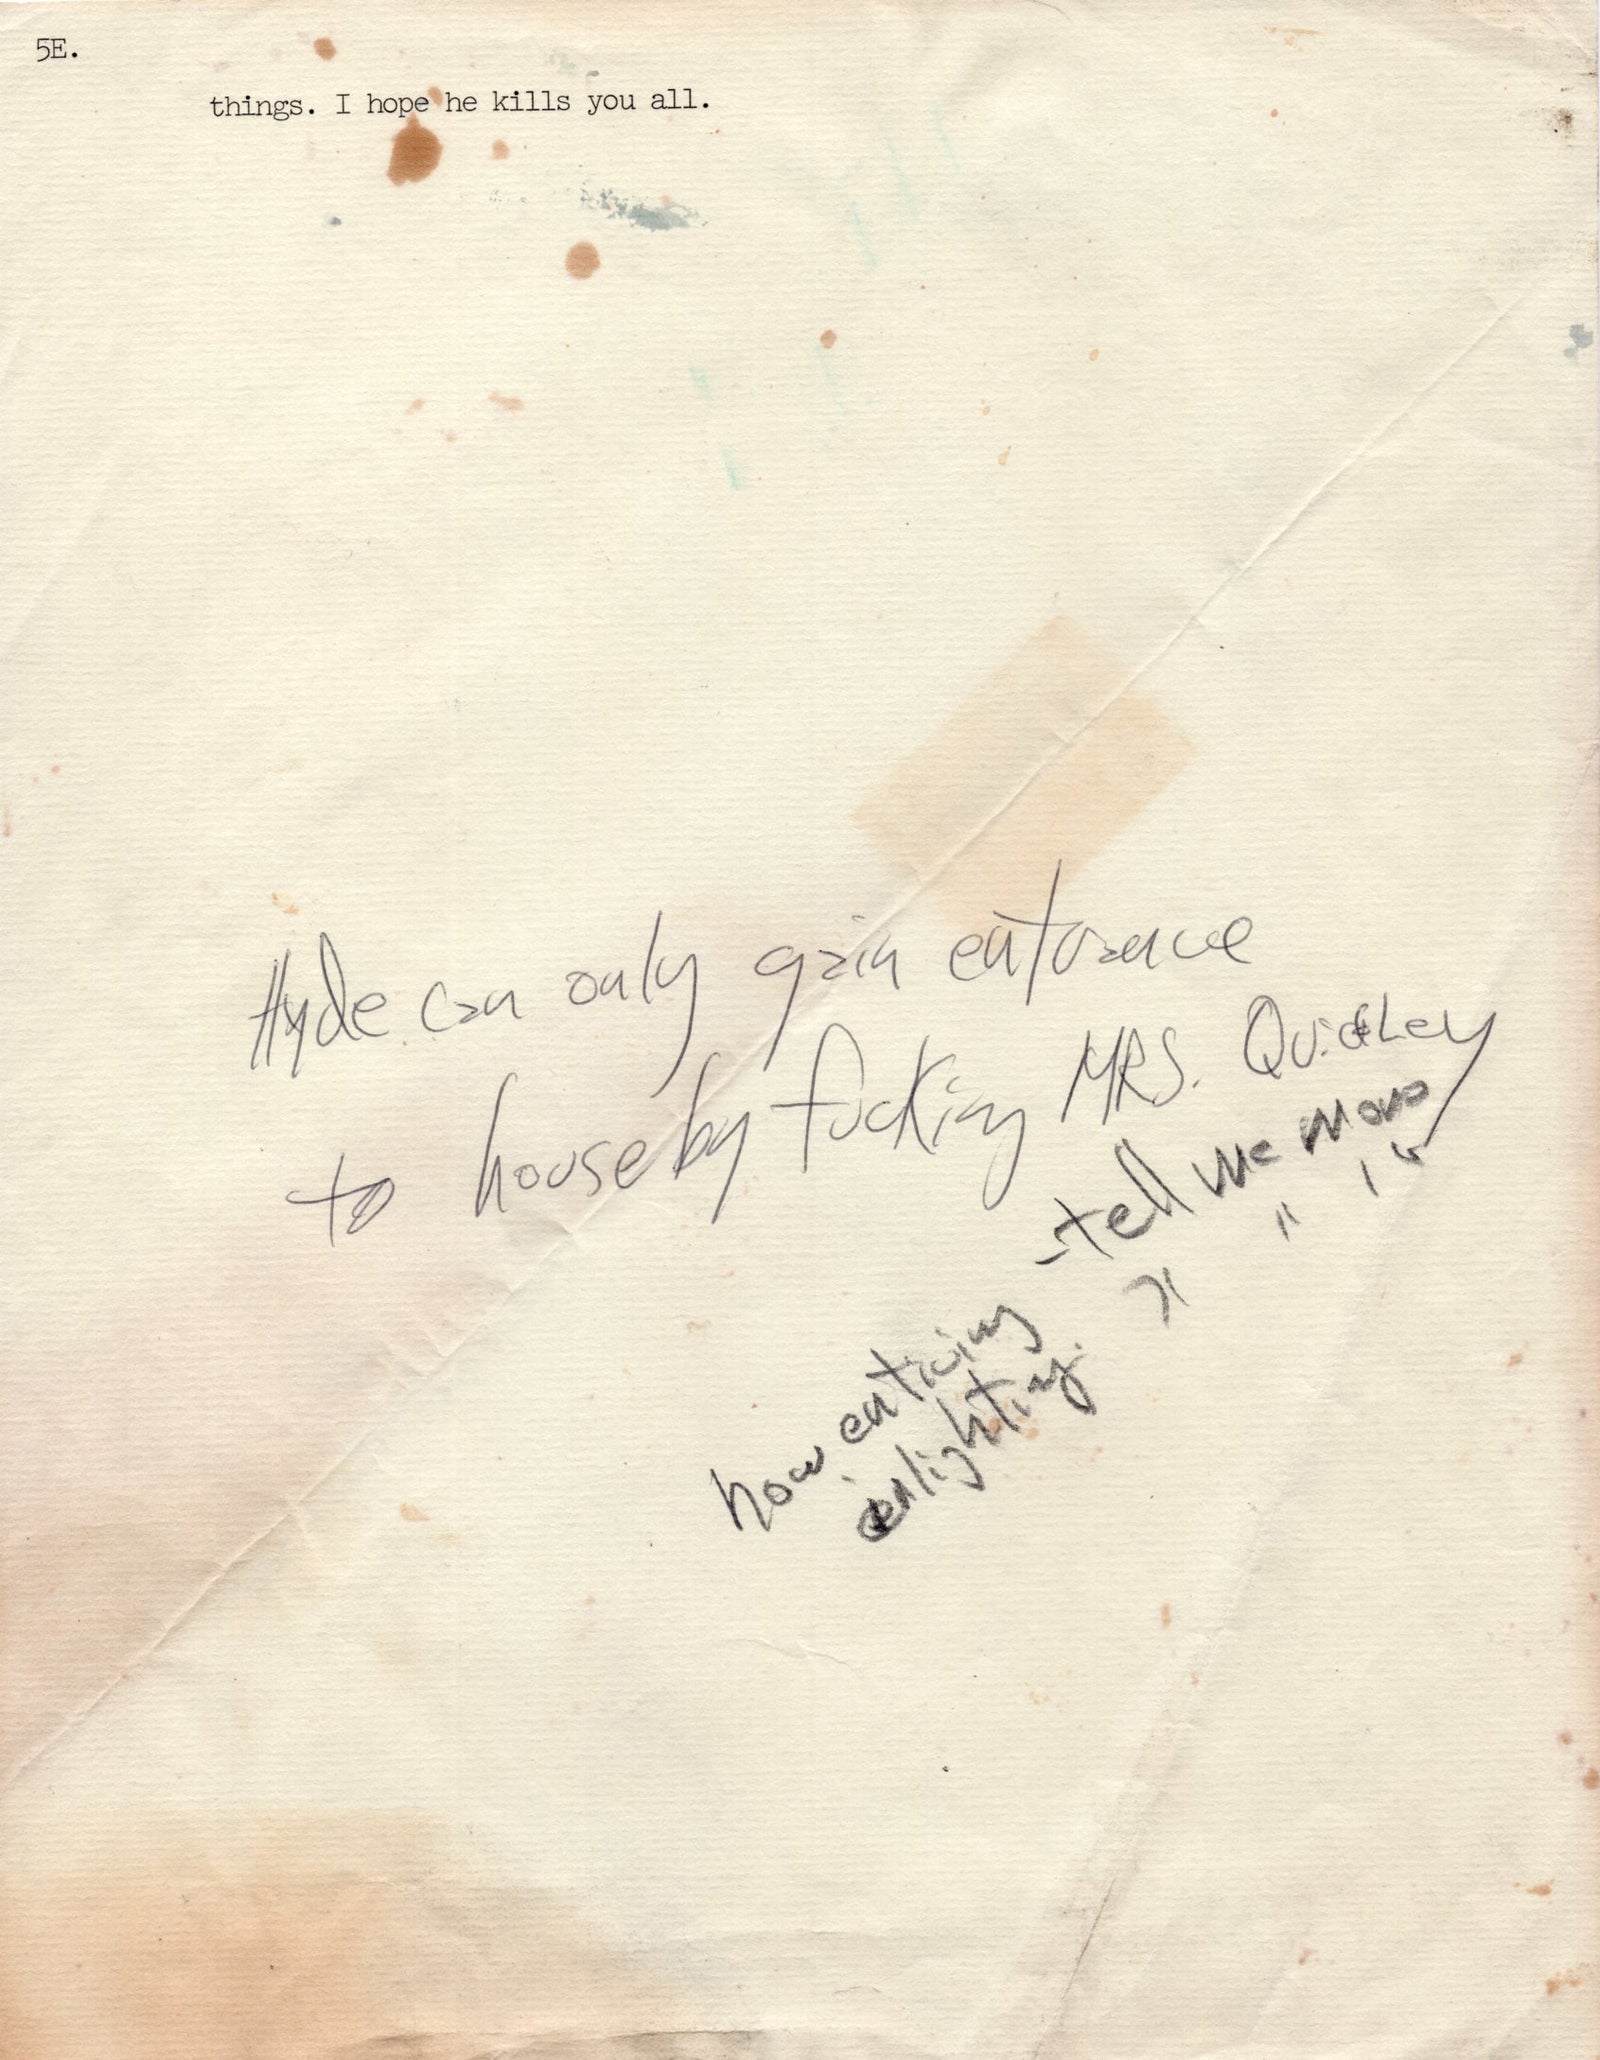 5E.
things. I hope he kills you all.
Hyde can only gain entorance
to house by fucking MRS. Quickley
-tell me more
" " " "
how enticing
enlighting.